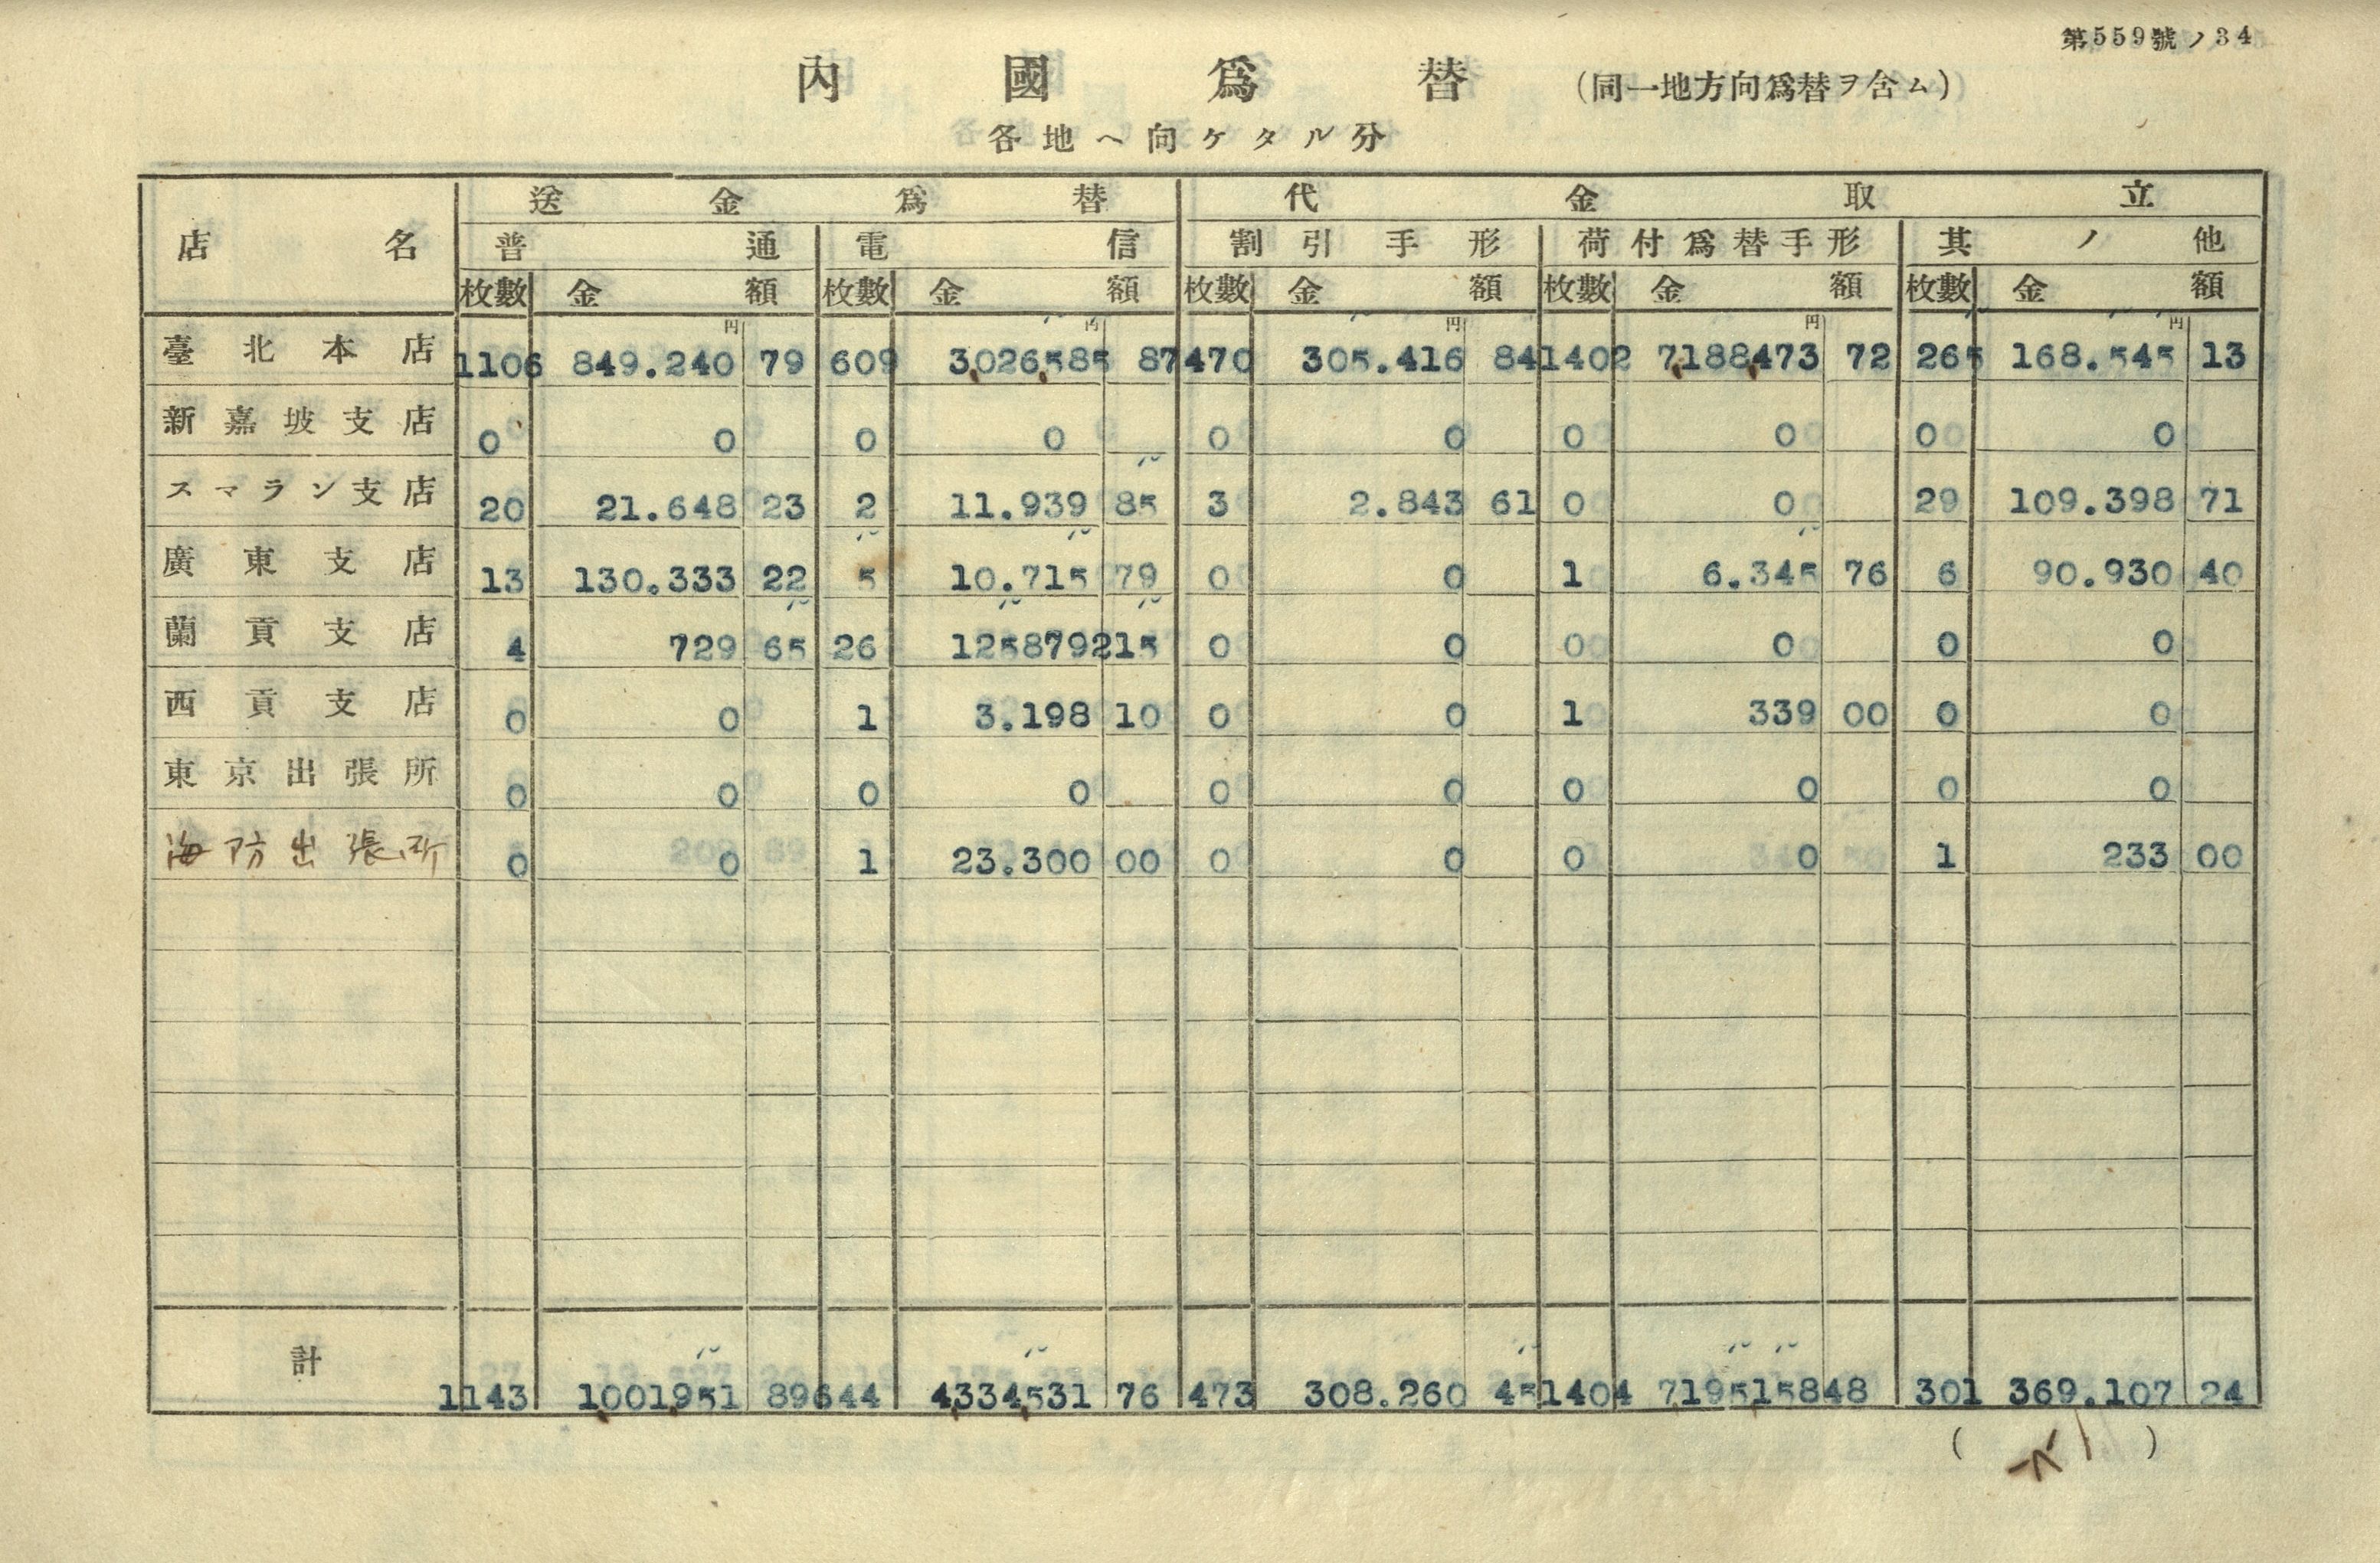 第559號ノ34
內國爲替 (同一地方向爲替ヲ含ム)
各地ヘ向ケタル分
店名 送金爲替 代金取立
普通 電信 割引手形 荷付爲替手形 其ノ他
枚數 金額 枚數 金額 枚數 金額 枚數 金額 枚數 金額
円 円 円 円 円
臺北本店 1106 849.240 79 609 3026585 87 470 305.416 84 1402 7188473 72 265 168.545 13
新嘉坡支店 0 0 0 0 0 0 0 0 0 0
スマラン支店 20 21.648 23 2 11.939 85 3 2.843 61 0 0 29 109.398 71
廣東支店 13 130.333 22 5 10.715 79 0 0 1 6.345 76 6 90.930 40
蘭貢支店 4 729 65 26 1258792 15 0 0 0 0 0 0
西貢支店 0 0 1 3.198 10 0 0 1 339 00 0 0
東京出張所 0 0 0 0 0 0 0 0 0 0
海防出張所 0 0 1 23.300 00 0 0 0 0 1 233 00
計 1143 1001951 89 644 4334531 76 473 308.260 45 1404 7195158 48 301 369.107 24
( )